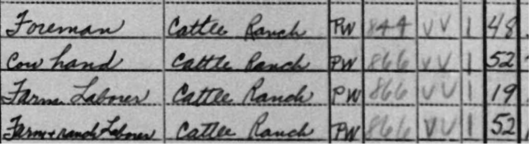 Foreman Cattle Ranch PW 844 VV 1 48
Cow hand Cattle Ranch PW 866 VV 1 52
Farm Laborer Cattle Ranch PW 866 VV 1 19
Farm + ranch Laborer Cattle Ranch PW 866 VV 1 52